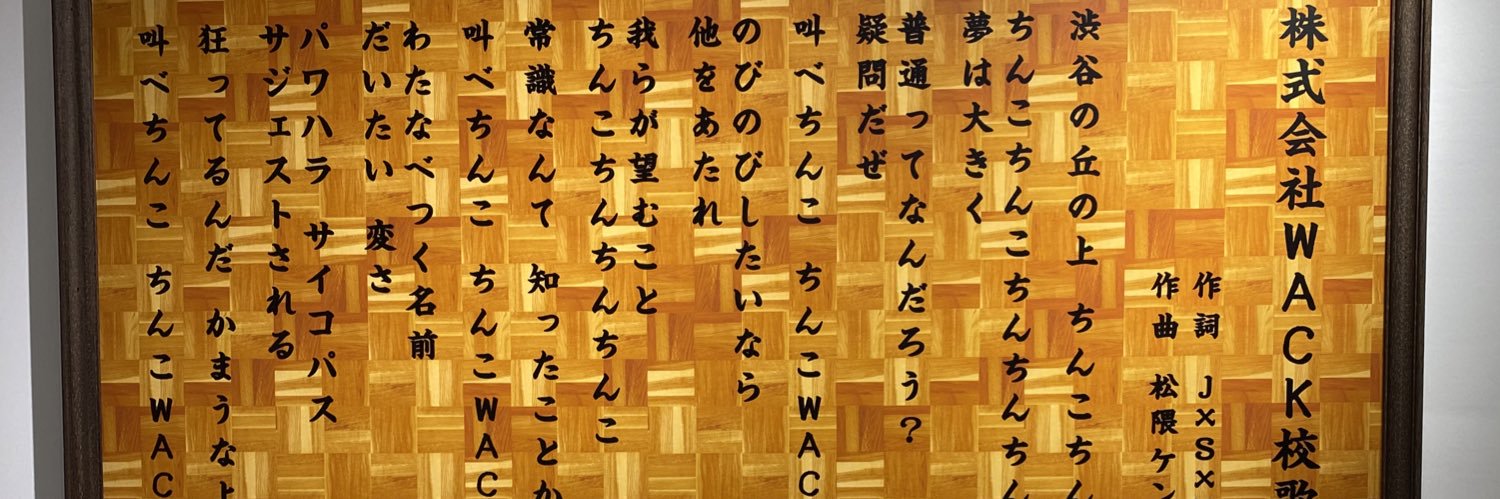 株式会社WACK校歌
作詞 J×S×
作曲 松隈ケン
渋谷の丘の上 ちんこちん
ちんこちんこちんちんちん
夢は大きく
普通ってなんだろう?
疑問だぜ
叫べちんこ ちんこWAC
のびのびしたいなら
他をあたれ
我らが望むこと
ちんこちんちんちんこ
常識なんて 知ったことか
叫べちんこ ちんこWAC
わたなべつく名前
だいたい 変さ
パワハラ サイコパス
サジェストされる
狂ってるんだ かまうなよ
叫べちんこ ちんこWAC